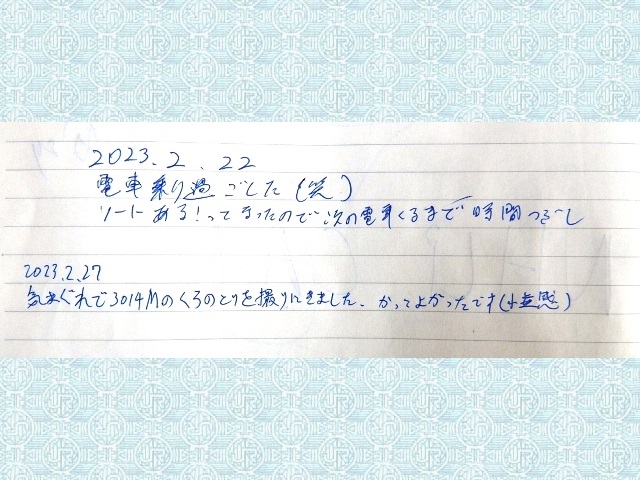 2023.2.22
電車乗り過ごしした(笑)
ノートある!ってなったので次の電車くるまで時間つぶし
2023.2.27
気まぐれで3014Mのくろのとりを撮りにきました。かってよかったです(小並感)